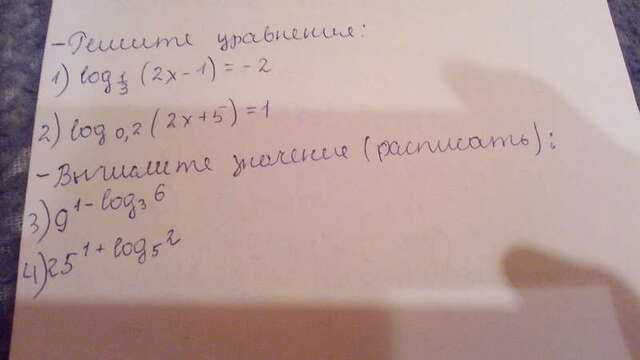 - Решите уравнения:
1) log 1/3 (2x-1) = -2
2) log 0,2 (2x+5) = 1
- Вычислите значение (расписать):
3) 9^1-log₃6
4) 25^1+log₅2